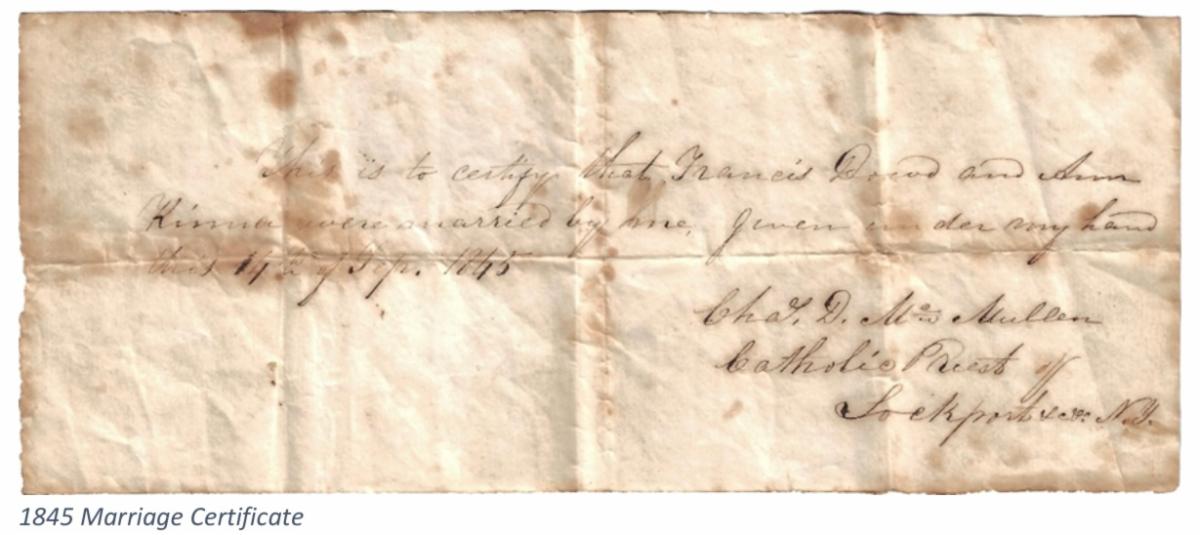 This is to certify that Francis Dowd and Ann
Kinna were married by me, given under my hand
this 14th of Sep. 1845
Chas. D. Mc Mullen
Catholic Priest of
Lockport &c. N.Y.
1845 Marriage Certificate